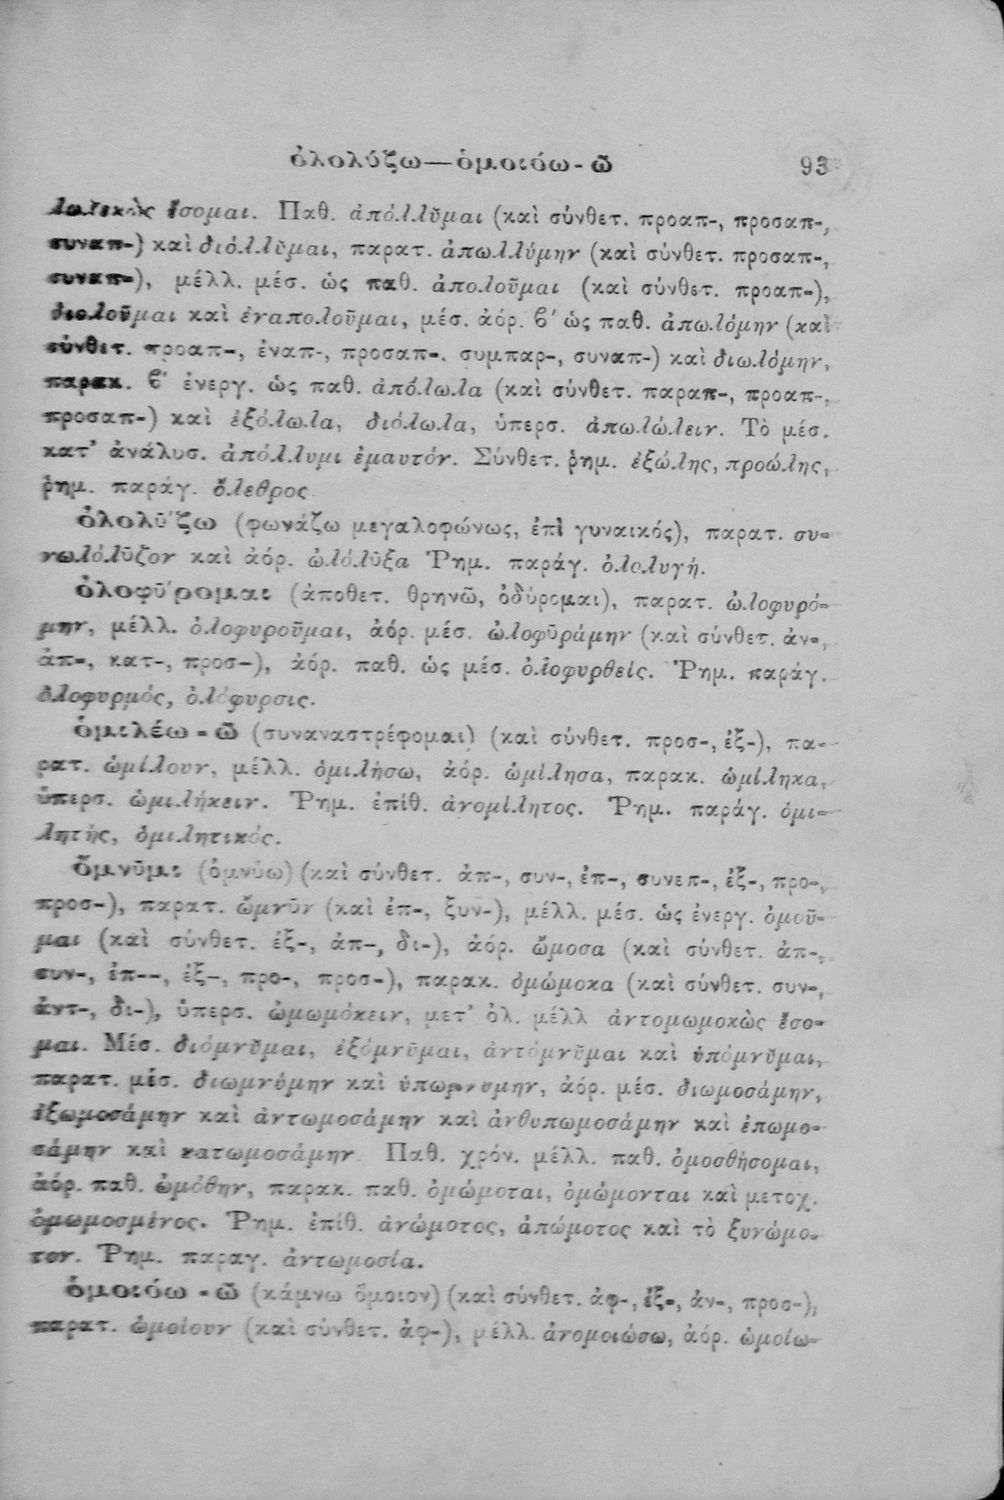 ὀλολύζω—ὁμοιόω-ῶ 93
λωλεκὼς ἔσομαι. Παθ. ἀπόλλῦμαι (καὶ σύνθετ. προαπ-, προσαπ-,
συναπ-) καὶ διόλλῦμαι, παρατ. ἀπωλλύμην (καὶ σύνθετ. προσαπ-,
συναπ-), μέλλ. μέσ. ὡς παθ. ἀπολοῦμαι (καὶ σύνθετ. προαπ-),
διολοῦμαι καὶ ἐναπολοῦμαι, μέσ. ἀόρ. ϐ′ ὡς παθ. ἀπωλόμην (καὶ
σύνθετ. προαπ-, ἐναπ-, προσαπ-. συμπαρ-, συναπ-) καὶ διωλόμην,
παρακ. ϐ′ ἐνεργ. ὡς παθ. ἀπόλωλα (καὶ σύνθετ. παραπ-, προαπ-,
προσαπ-) καὶ ἐξόλωλα, διόλωλα, ὑπερσ. ἀπωλώλειν. Τὸ μέσ.
κατ' ἀνάλυσ. ἀπόλλυμι ἐμαυτόν. Σύνθετ. ῥημ. ἐξώλης, προώλης,
ῥημ. παράγ. ὄλεθρος
ὀλολῡ́ζω (φωνάζω μεγαλοφώνως, ἐπὶ γυναικός), παρατ. συ-
νωλόλῡζον καὶ ἀόρ. ὠλόλῡξα Ῥημ. παράγ. ὀλολυγή.
ὀλοφῡ́ρομαι (ἀποθετ. θρηνῶ, ὀδύρομαι), παρατ. ὠλοφυρό-
μην, μέλλ. ὀλοφυροῦμαι, ἀόρ. μέσ. ὠλοφῡράμην (καὶ σύνθετ. ἀν-,
ἀπ-, κατ-, προσ-), ἀόρ. παθ. ὡς μέσ. ὀλοφυρθείς. Ῥημ. παράγ.
ὀλοφυρμός, ὀλόφυρσις.
ὁμιλέω-ῶ (συναναστρέφομαι) (καὶ σύνθετ. προσ-, ἐξ-), πα-
ρατ. ὡμίλουν, μέλλ. ὁμιλήσω, ἀόρ. ὡμίλησα, παρακ. ὡμίληκα,
ὑπερσ. ὡμιλήκειν. Ῥημ. ἐπίθ. ἀνομίλητος. Ῥημ. παράγ. ὁμι-
λητής, ὁμιλητικός.
ὄμνῡμι (ὀμνύω) (καὶ σύνθετ. ἀπ-, συν-, ἐπ-, συνεπ-, ἐξ-, προ-,
προσ-), παρατ. ὤμνῡν (καὶ ἐπ-, ξυν-), μέλλ. μέσ. ὡς ἐνεργ. ὀμοῦ-
μαι (καὶ σύνθετ. ἐξ-, ἀπ-, δι-), ἀόρ. ὤμοσα (καὶ σύνθετ. ἀπ-,
συν-, ἐπ--, ἐξ-, προ-, προσ-), παρακ. ὀμώμοκα (καὶ σύνθετ. συν-,
ἀντ-, δι-), ὑπερσ. ὠμωμόκειν, μετ' ὁλ. μέλλ ἀντομωμοκὼς ἔσο-
μαι. Μέσ. διόμνῦμαι, ἐξόμνῦμαι, ἀντόμνῦμαι καὶ ὑπόμνῦμαι,
παρατ. μέσ. διωμνύμην καὶ ὑπωμνυμην, ἀόρ. μέσ. διωμοσάμην,
ἐξωμοσάμην καὶ ἀντωμοσάμην καὶ ἀνθυπωμοσάμην καὶ ἐπωμο-
σάμην καὶ κατωμοσάμην Παθ. χρόν. μέλλ. παθ. ὀμοσθήσομαι,
ἀόρ. παθ. ὠμόθην, παρακ. παθ. ὀμώμοται, ὀμώμονται καὶ μετοχ.
ὀμωμοσμένος. Ῥημ. ἐπίθ. ἀνώμοτος, ἀπώμοτος καὶ τὸ ξυνώμο-
τον. Ῥημ. παραγ. ἀντωμοσία.
ὁμοιόω-ῶ (κάμνω ὅμοιον) (καὶ σύνθετ. ἀφ-, ἐξ-, ἀν-, προσ-),
παρατ. ὡμοίουν (καὶ σύνθετ. ἀφ-), μέλλ. ἀνομοιώσω, ἀόρ. ὡμοίω-